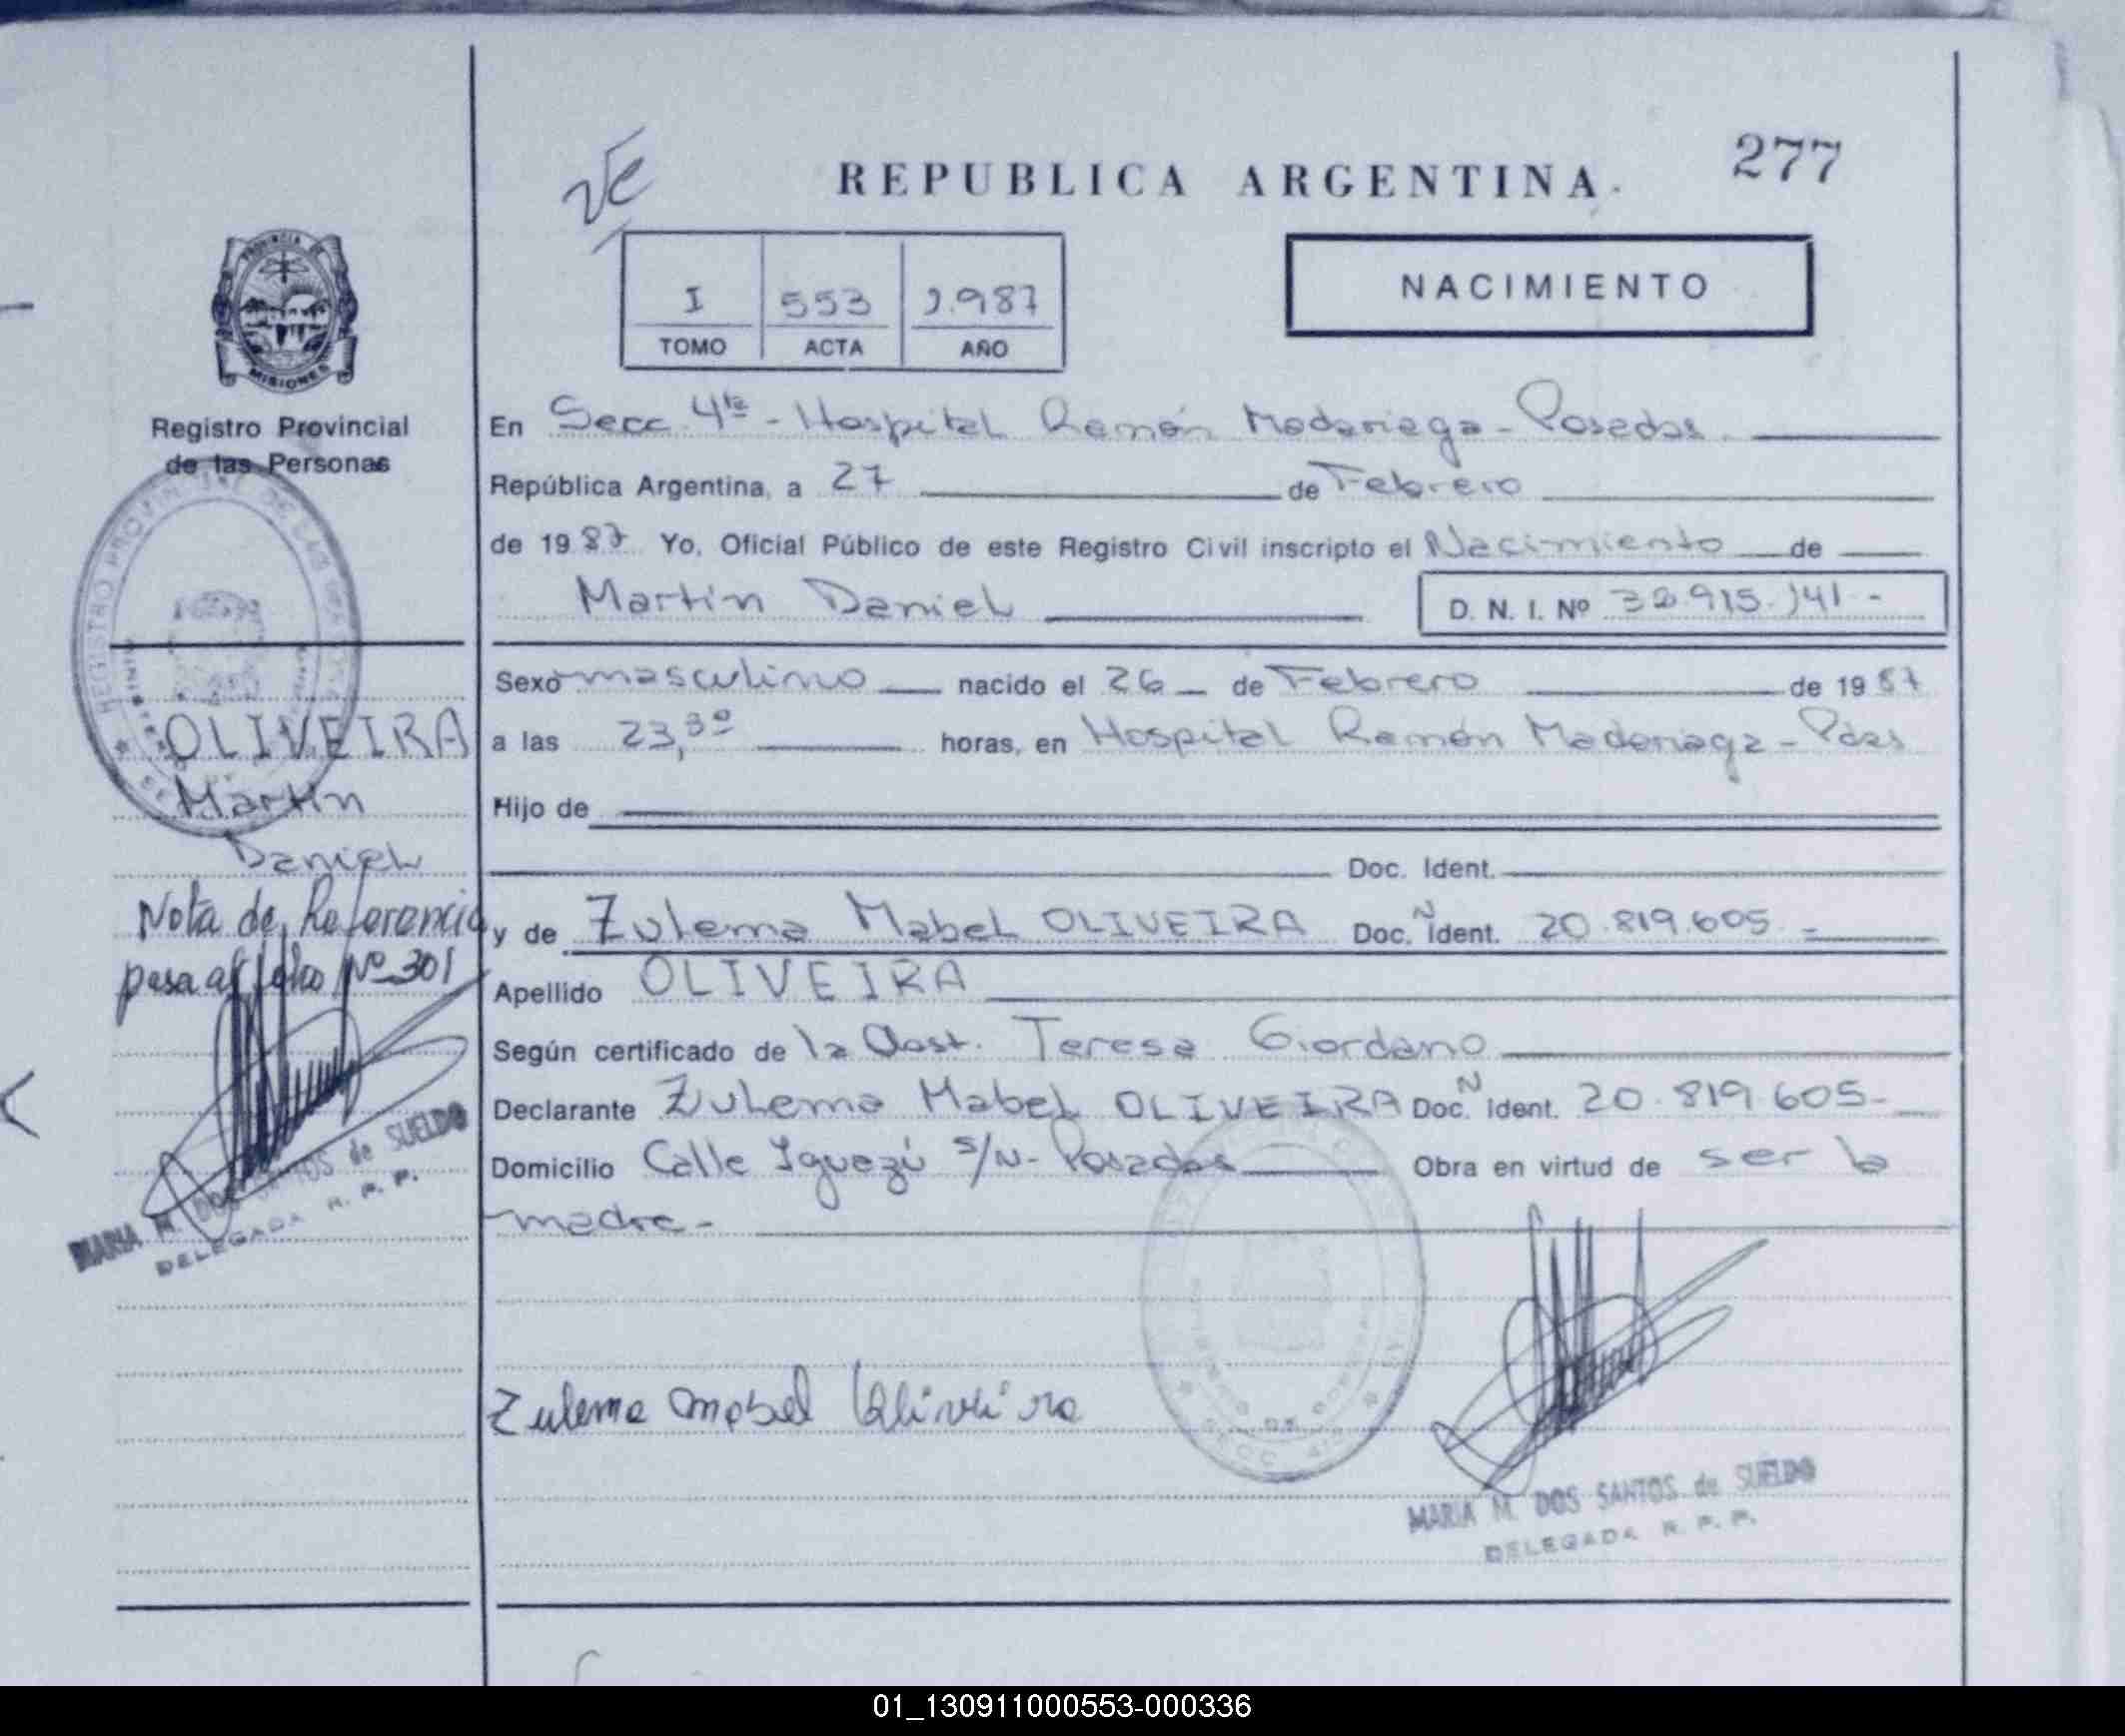 277
REPUBLICA ARGENTINA
NACIMIENTO
I 553 1.987
TOMO ACTA AÑO
PROVINCIA DE
MISIONES
Registro Provincial
de las Personas
OLIVEIRA
Martín
Daniel
Nota de Referencia
pasa al folio Nº 301
MARIA M. DOS SANTOS de SUELDO
DELEGADA R. P. P.
En Secc. 4ta - Hospital Ramón Madariaga - Posadas.
República Argentina, a 27 de Febrero
de 1987 Yo, Oficial Público de este Registro Civil inscripto el Nacimiento de
Martín Daniel D. N. I. Nº 32.915.141 -
Sexo masculino nacido el 26 de Febrero de 1987
a las 23,30 horas, en Hospital Ramón Madariaga - Pdas
Hijo de
Doc. Ident.
y de Zulema Mabel OLIVEIRA Doc. N Ident. 20.819.605 -
Apellido OLIVEIRA
Según certificado de la Obst. Teresa Giordano
Declarante Zulema Mabel OLIVEIRA Doc. N Ident. 20.819.605 -
Domicilio Calle Iguazú s/N - Posadas Obra en virtud de ser la
madre -
Zulema Mabel Oliveira
MARIA M. DOS SANTOS de SUELDO
DELEGADA R. P. P.
01_130911000553-000336